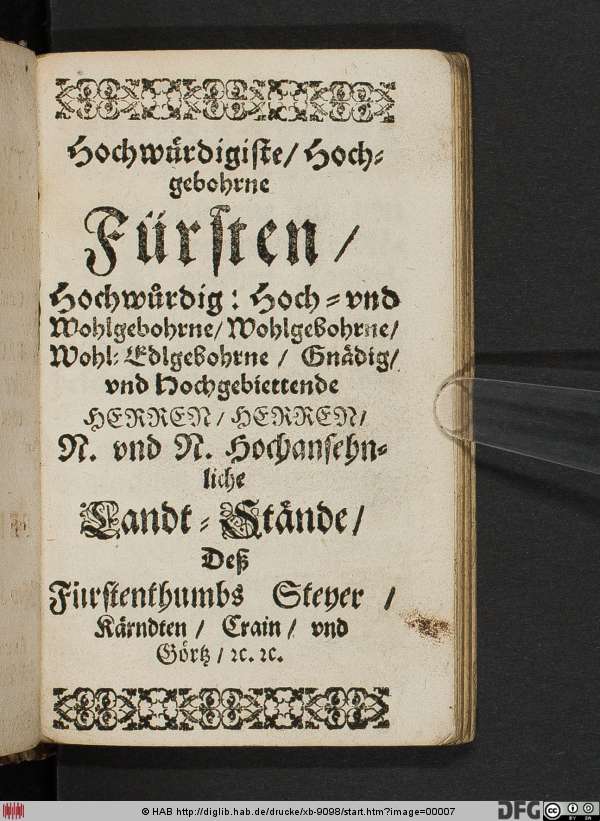 Hochwürdigiste/ Hoch-
gebohrne
Fürsten /
Hochwůrdig: Hoch- vnd
Wohlgebohrne/ Wohlgebohrne/
Wohl-Edlgebohrne / Gnädig/
vnd Hochgebiettende
HERREN / HERREN /
N. vnd N. Hochansehn-
liche
Landt-Stände/
Deß
Fürstenthumbs Steyer /
Kärndten / Crain / vnd
Görtz / ꝛc. ꝛc.
© HAB http://diglib.hab.de/drucke/xb-9098/start.htm?image=00007
DFG
cc
BY SA